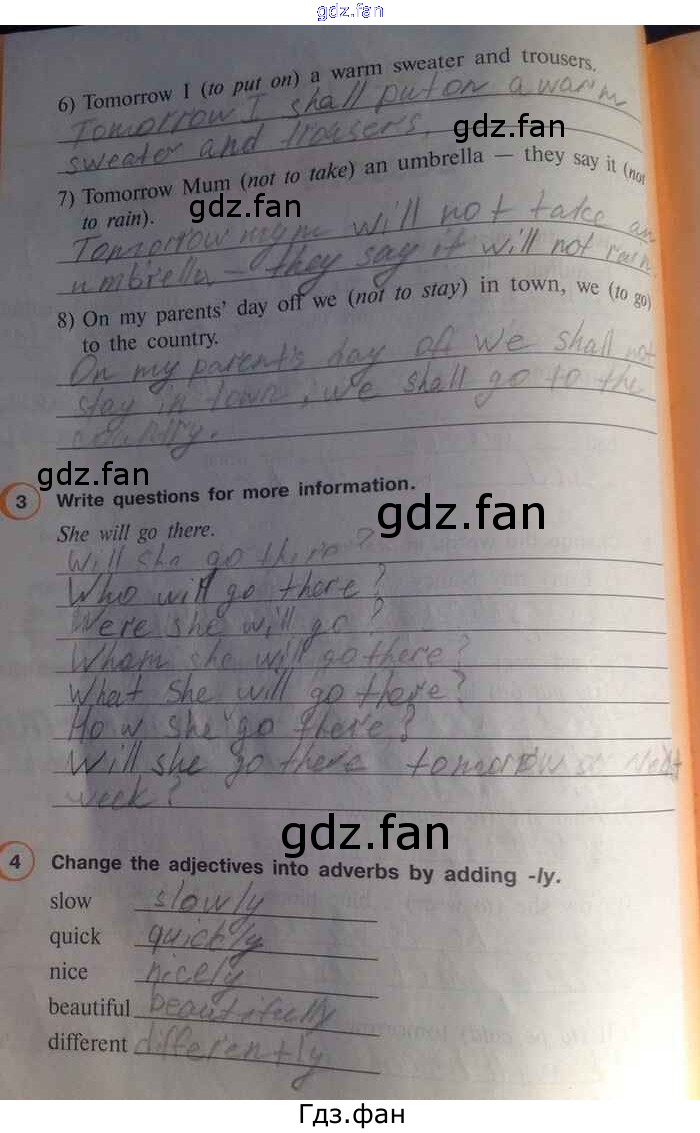 gdz.fan
6) Tomorrow I (to put on) a warm sweater and trousers.
Tomorrow I shall put on a warm
sweater and trousers.
gdz.fan
7) Tomorrow Mum (not to take) an umbrella — they say it (not
to rain).
gdz.fan
Tomorrow mym will not take an
umbrella – they say it will not rain.
8) On my parents' day off we (not to stay) in town, we (to go)
to the country.
On my parent's day off we shall not
stay in town, we shall go to the
country.
gdz.fan
3 Write questions for more information.
gdz.fan
She will go there.
Will she go there?
Who will go there?
Were she will go?
Wham she will go there?
What she will go there?
How she go there?
Will she go there tomorrow or next
week?
gdz.fan
4 Change the adjectives into adverbs by adding -ly.
slow slowly
quick quickly
nice nicely
beautiful beautifully
different differently
Гдз.фан